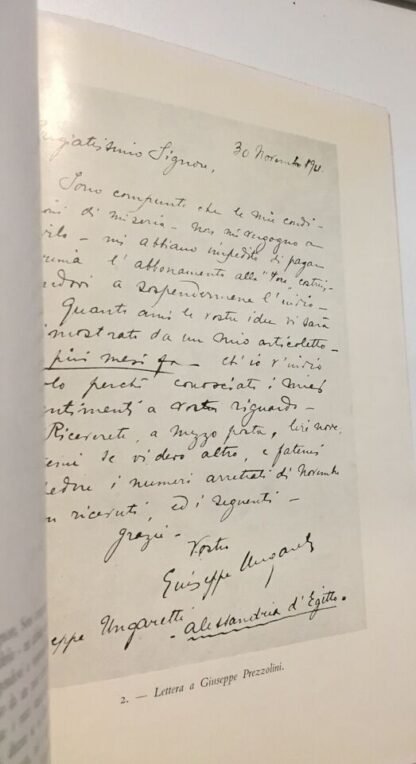 30 Novembre 1911.
regiatissimo Signore,
Sono compunto che le mie condi-
oni di miseria – non mi vergogno a
irlo – mi abbiano impedito di pagar
prima l'abbonamento alla "Voce, costrin-
endovi a sospendermene l'invio –
Quanto ami le vostre idee vi sarà
imostrato da un mio articoletto –
più mesi fa – ch'io v'invio
olo perchè conosciate i miei
entimenti a vostro riguardo –
Riceverete, a mezzo posta, lire nove.
temi se vi devo altro, e fatemi
edere i numeri arretrati di Novembre
n ricevuti, ed i seguenti –
Grazie –
Vostro
Giuseppe Ungaretti
eppe Ungaretti
– Alessandria d'Egitto.
2. — Lettera a Giuseppe Prezzolini.